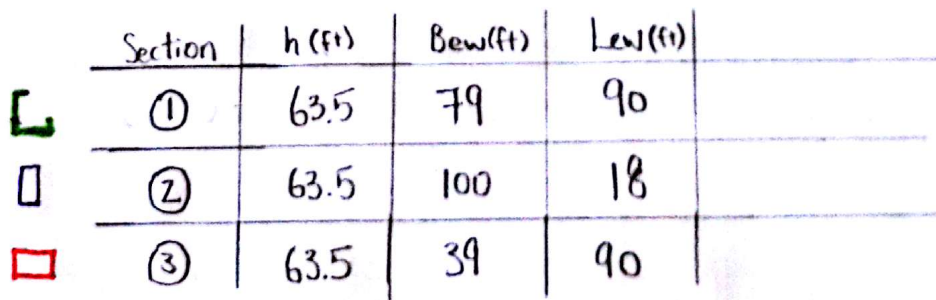 Section h (ft) Bew(ft) Lew(ft)
① 63.5 79 90
② 63.5 100 18
③ 63.5 39 90